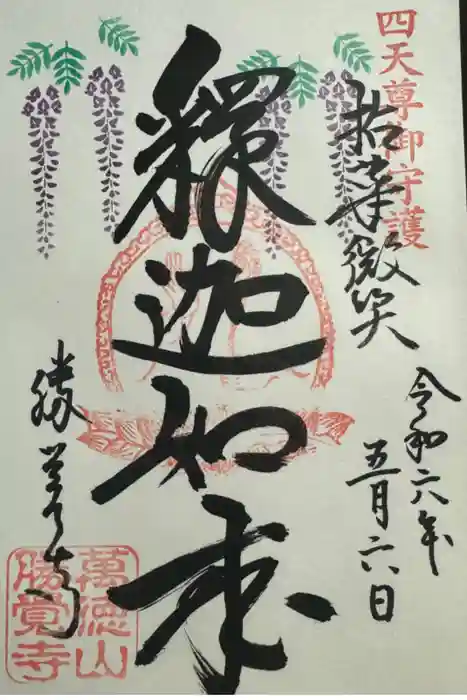 四天尊御守護
拈華微笑
令和六年
五月六日
釋迦如来
勝覚寺
萬德山
勝覺寺